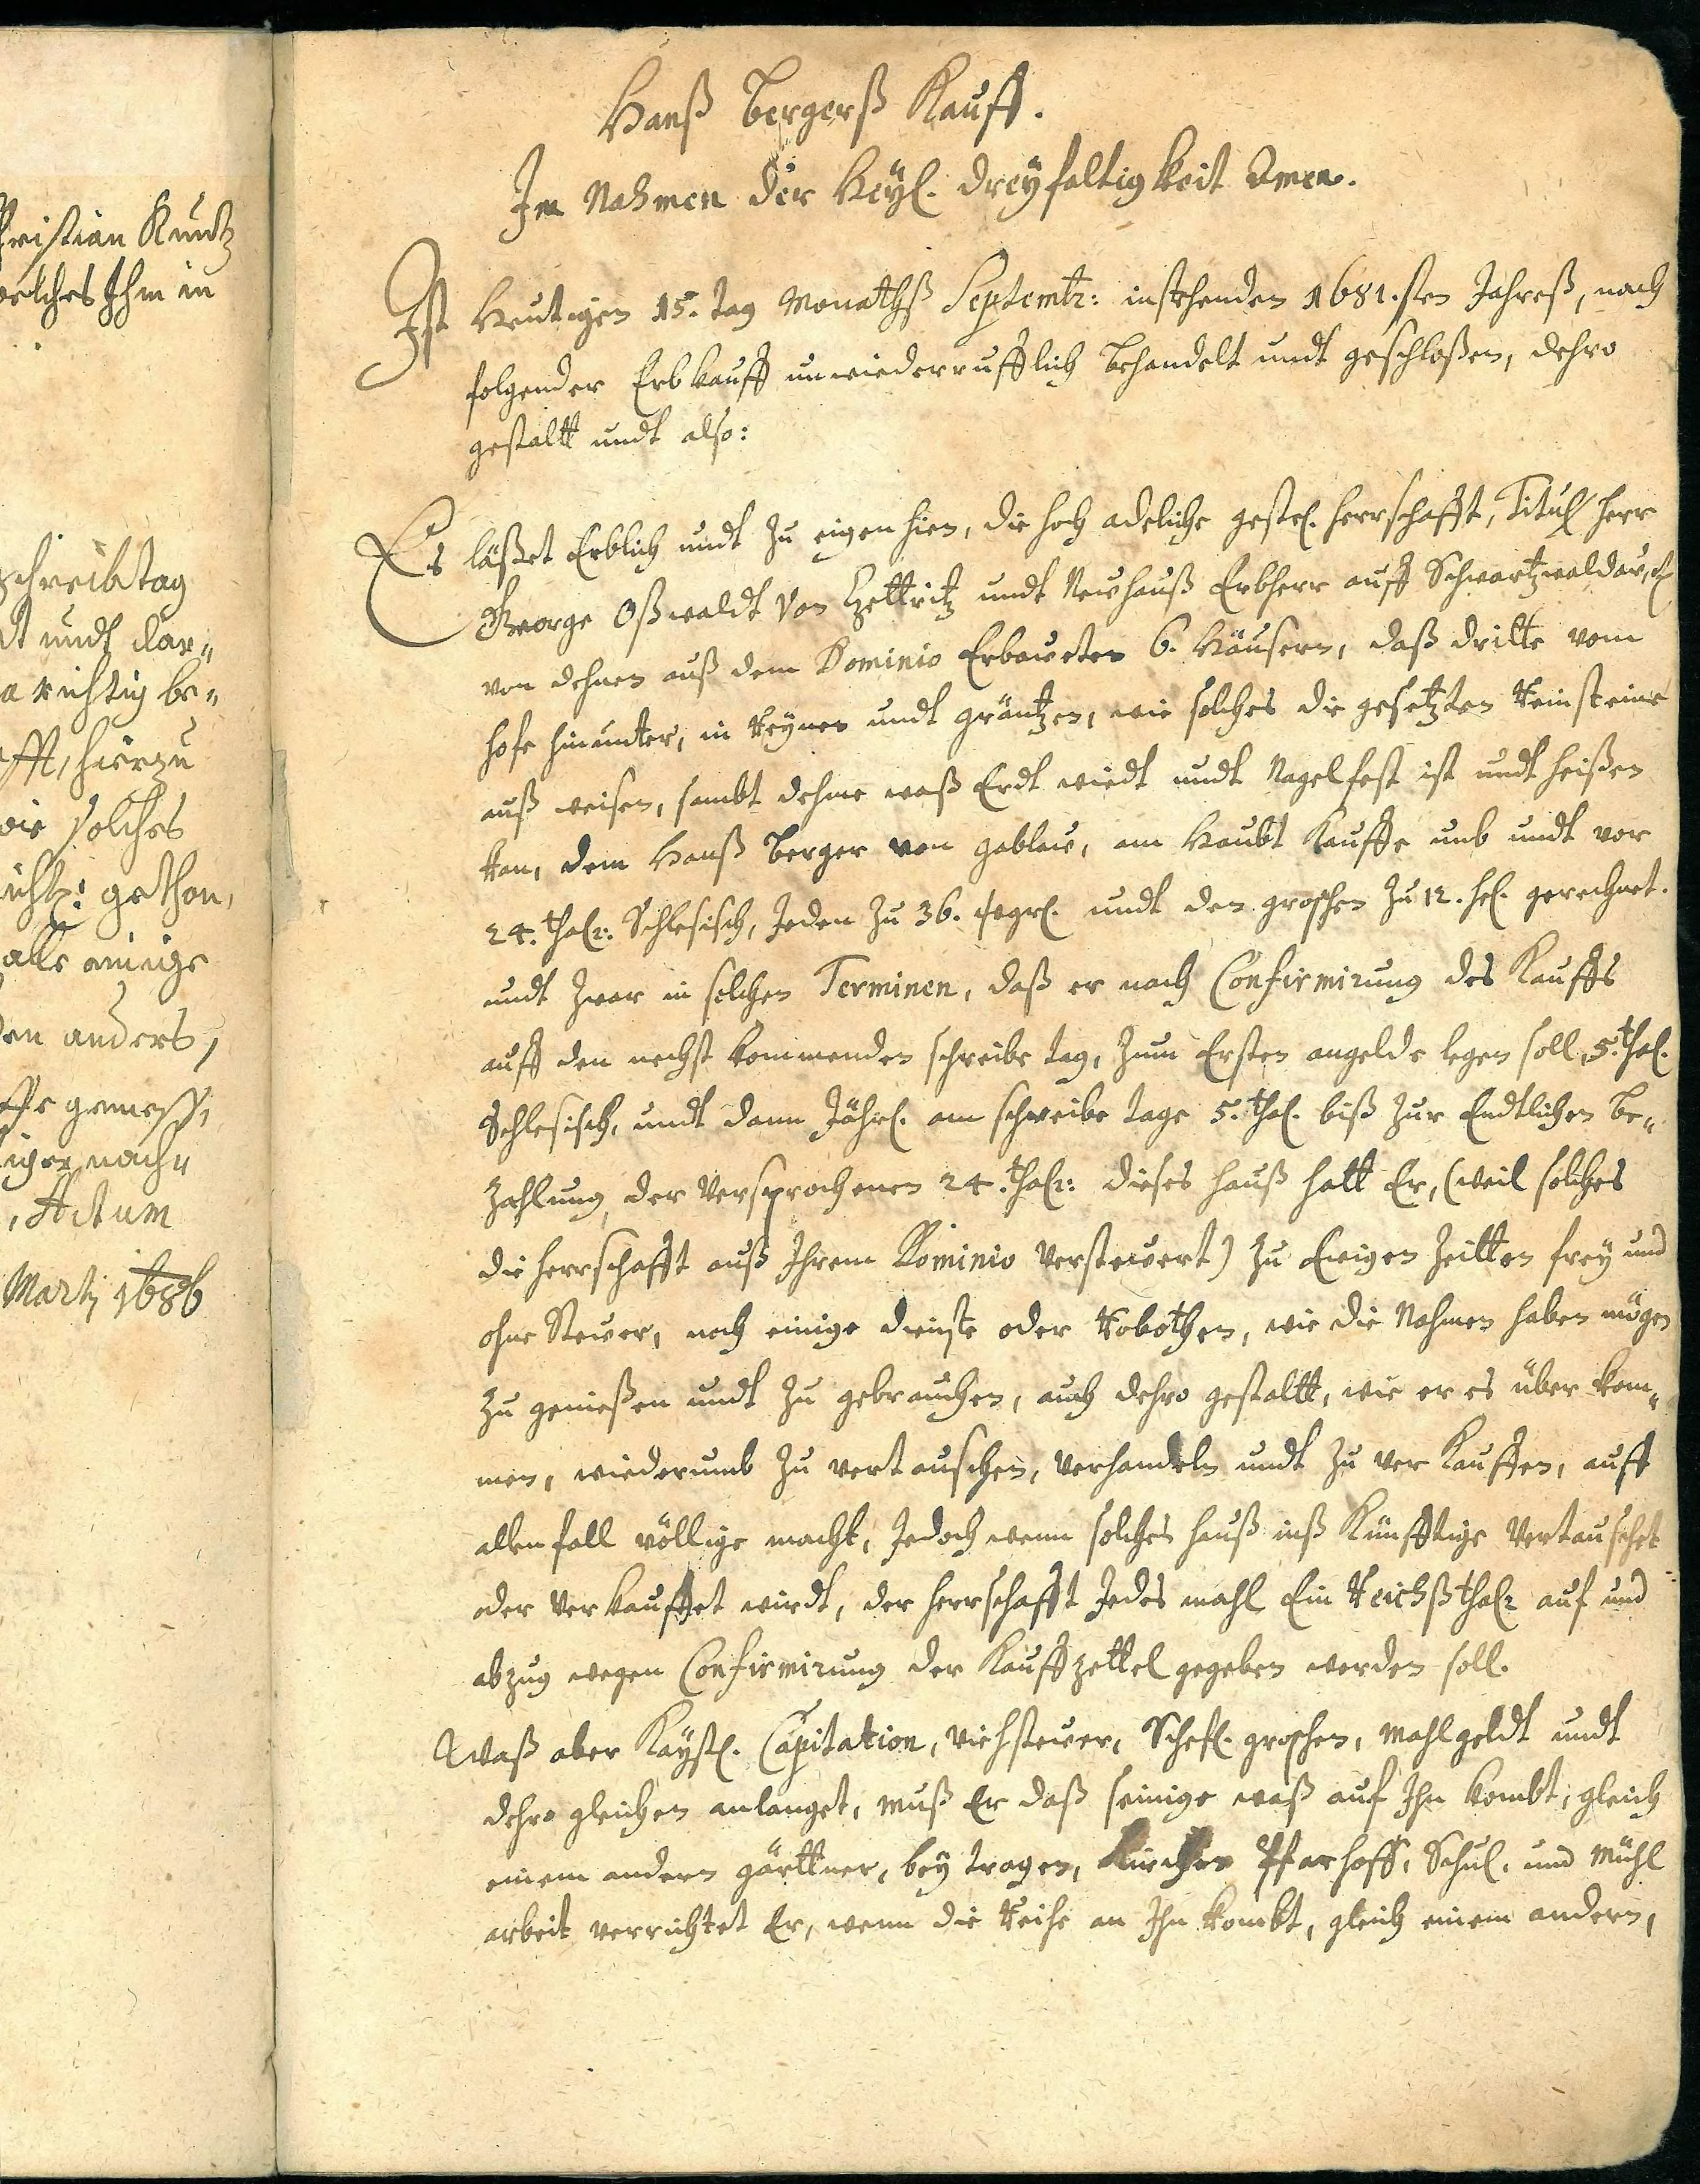 Christian Kuntz
welches Ihm in
Schreibtag
dt undt dar„
a richtig be„
fft, hierzu
wie solches
gethan,
alle einige
den anders,
ffe gemeß,
nach„
, Actum
Martj 1686
Hanß Bergerß Kauff.
Im Nahmen der Heyl. dreyfaltigkeit Amen.
Ist Heutigen 15. Tag Monathß Septembr: instehenden 1681.sten Jahreß, nach
folgender Erbkauff unwiederrufflich behandelt undt geschloßen, dehro
gestaltt undt also:
Es läßet Erblich undt zu eigen hien, die hoch adeliche gestr. herrschafft, Titul herr
George Oßwaldt Von Tzettritz undt Neuhauß Erbherr auff Schwartzwaldau,
von dehnen auß dem Dominio Erbaweten 6. Häusern, daß dritte vom
hofe hinunter, in Reynen undt gräntzen, wie solches die gesetzten Reinsteine
auß weisen, sambt dehme waß Erdt wiedt undt Nagelfest ist undt heißen
kan, dem Hanß Berger von gablau, am Haubt Kauffe umb undt vor
24. thalr: Schlesisch, Jeden zu 36. wgrl. undt den groschen zu 12. hel. gerechnet.
undt zwar in solchen Terminen, daß er nach Confirmirung des Kauffs
auff den nechst kommenden schreibe tag, zum Ersten angelde legen soll, 5. thal.
Schlesisch, undt dann Jährl. am schreibe tage 5. thal. biß zur Endtlichen Be„
zahlung, der Versprochenen 24. thalr: dieses hauß hatt Er, (weil solches
die herrschafft auß Ihrem Dominio Versteuert) zu Ewigen Zeitten frey und
ohne Steuer, noch einige dienste oder Robothen, wie die Nahmen haben mögen
zu genießen undt zu gebrauchen, auch dehro gestaltt, wie er es über kom„
men, wiederumb zu vertauschen, verhandeln undt zu ver Kauffen, auff
allen fall völlige macht, Jedoch wenn solches hauß inß Künfftige Vertauschet
oder Verkauffet wirdt, der herrschafft Jedes mahl Ein Reichßthalr auf und
abzug wegen Confirmirung der Kauffzettel gegeben werden soll.
Waß aber Kaysl. Capitation, Viehsteuer, Schefl. groschen, Mahlgeldt undt
dehro gleichen anlanget, muß Er daß seinige waß auf Ihn kombt, gleich
einem andern gärttner, bey tragen, Kirchen Pfarhoff, Schul. und Mühl
arbeit verrichtet Er, wenn die Reihe an Ihn kombt, gleich einem andern,